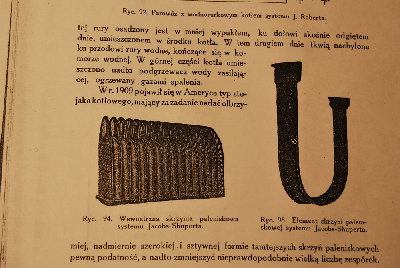 Ryc. 92. Parowóz z wodnorurkowym kotłem systemu J. Roberta.
tej rury osadzony jest w mniej wypukłem, ku dołowi skośnie odgiętem
dnie, umieszczonem w środku kotła. W tem drugiem dnie tkwią nachylone
ku przodowi rury wodne, kończące się w ko-
morze wodnej. W górnej części kotła umie-
szczono nadto podgrzewacz wody zasilają-
cej, ogrzewany gazami spalenia.
W r. 1909 pojawił się w Ameryce typ sto-
jaka kotłowego, mający za zadanie nadać olbrzy-
Ryc. 94. Wewnętrzna skrzynia paleniskowa
systemu Jacobs-Shuperta.
Ryc. 95. Element skrzyni palenis-
kowej systemu Jacobs-Shuperta.
miej, nadmiernie szerokiej i sztywnej formie tamtejszych skrzyń paleniskowych
pewną podatność, a nadto zmniejszyć nieprawdopodobnie wielką liczbę zespórek.